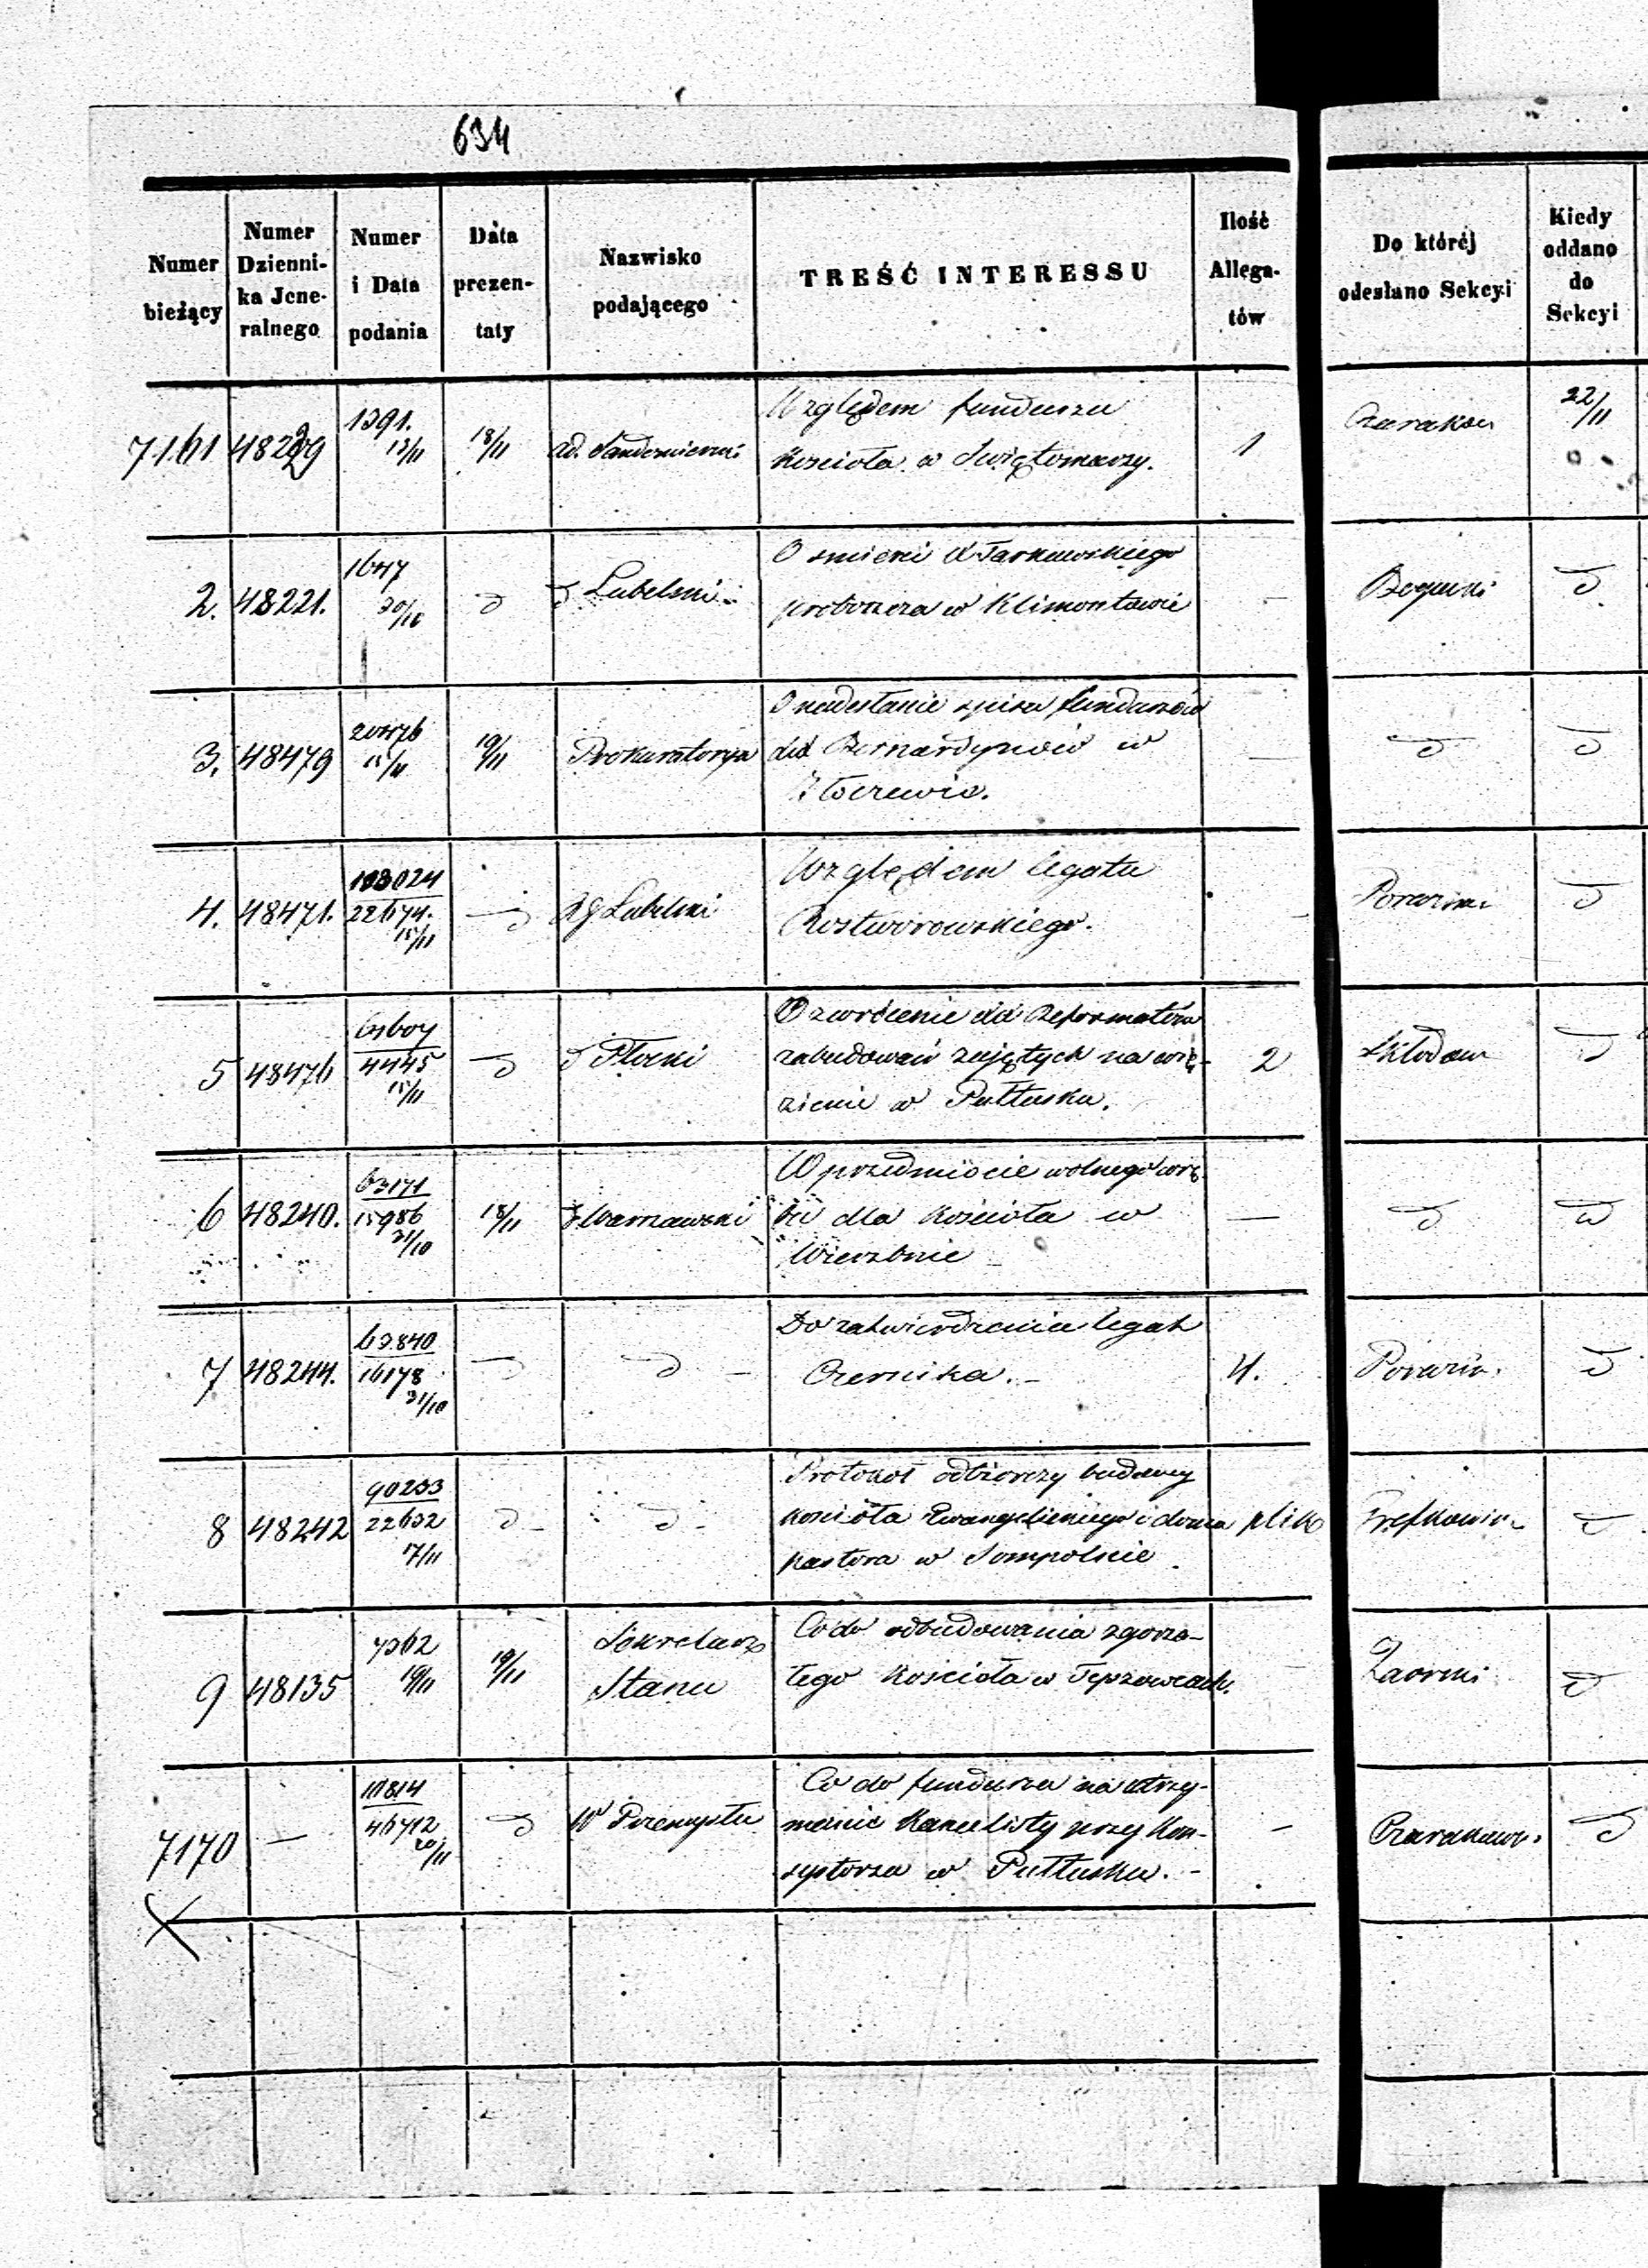 634
Numer bieżący
Numer Dzienni-ka Jene-ralnego
Numer i Data podania
Data prezen-taty
Nazwisko podającego
TREŚĆ INTERESSU
Ilość Allega-tów
Do któréj odesłano Sekcyi
Kiedy oddano do Sekcyi
7161 48229 1391. 13/11 18/11 ad. Sandomierski
Względem funduszu
Kościoła w Świętomarzy.
1 22/11
2. 48221. 1647 30/10 d d Lubelski
O śmierci X Tarnawskiego
proboszcza w Klimontowie
— d
3. 48479 20476 15/11 19/11 Prokuratorya
O nadesłanie spisu funduszów
dd Bernardynów w
Złoczewie.
— d d
4. 48471. 103024 22674. 15/11 d RG Lubelski
Względem legatu
Rostworowskiego.
d
5 48476 4445 15/11 d d Płocki
O zwrócenie dd Reformatów
zabudowań zajętych na wię-
zienie w Pułtusku.
2 d
6 48240. 63171 15986 31/10 18/11 d Warszawski
W przedmiocie wolnego wrę-
bu dla Kościoła w
Wierzbnie
— d d
7 48244. 63840 16178 31/10 d d —
Do zatwierdzenia legat
Czernika. —
4. d
8 48242 90233 22632 17/11 d d
Protokół odbiorczy budowy
kościoła Ewangelickiego i domu
pastora w Sompolnie
plik d
9 48135 7362 19/11 19/11 Sekretarz Stanu
Co do odbudowania zgorza-
łego Kościoła w
d
7170 — 10814 46712 20/11 d W Przemysłu
Co do funduszu na utrzy-
manie Kancelisty przy Kon-
systorzu w Pułtusku. —
— d